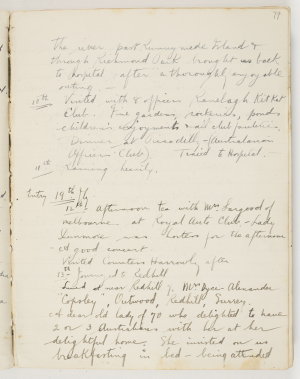 77
the river past Runnymede Island &
through Richmond Park brought us back
to hospital after a thoroughly enjoyable
outing. —
10th Visited with 8 officers Ranelagh Kit Kat
Club. Fine gardens, rockeries, ponds
children's enjoyments & all club families.
Dinner at Piccadilly – (Australasian
Officers Club) Train to Hospital.
11th Raining heavily.
Entry 19th
12th afternoon tea with Mrs Sargood of
Melbourne at Royal Auto Club – Lady
was hostess for the afternoon
A good concert
Visited Countess Harrowby after
13th Journeyed to Redhill
at near Redhill by Mrs Dyce Alexander
"Copsley", Outwood, Redhill, Surrey.
A dear old lady of 70 who delighted to have
2 or 3 Australians with her at her
delightful home. She insisted on us
breakfasting in bed – being attended